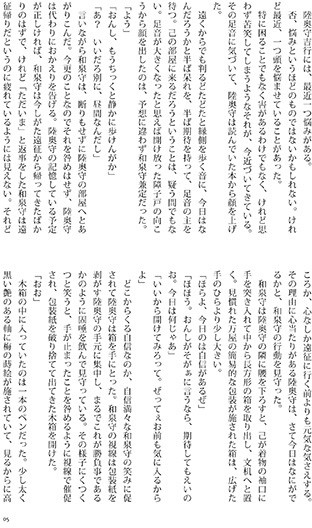 陸奥守吉行には、最近一つ悩みがある。
否、悩みというほどのものではないかもしれない。けれ
ど最近、一つ頭を悩ませていることがあった。
特に困ることでもなく害があるわけでもなく、けれど思
わず苦笑してしまうようなそれが、今近づいてきている。
その足音に気づいて、陸奥守は読んでいた本から顔を上げ
た。
遠くからでも判るどたどたと縁側を歩く音に、今日はな
んだろうかと半ば呆れを、半ば期待を持って、足音の主を
待つ。己の部屋に来るだろうということは、疑う間でもな
い。足音が大きくなったと思えば開け放った障子戸の向こ
うから顔を出したのは、予想に違わず和泉守兼定だった。
「よう」
「おんし、もうちっくと静かに歩けんがか」
「あ？　いいだろ別に、昼間なんだし」
言いながら和泉守は、断りもせずに陸奥守の部屋へとあ
がりこんだ。今更のことなのでそれを咎めはせず、陸奥守
は代わりにおかえりを告げる。陸奥守の記憶している予定
が正しければ、和泉守は今しがた遠征から帰ってきたばか
りのはずで、けれど「ただいま」と返事をした和泉守は遠
征帰りだというのに疲れているようには見えない。それど
ころか、心なしか遠征に行く前よりも元気だ気さえする。
その理由に心当たりがある陸奥守は、さて今日はなにがで
るかと、和泉守の行動を見守った。
和泉守は陸奥守の隣に腰を下ろすと、己が着物の袖口に
手を突き入れて中から長方形の箱を取り出し、文机へと置
く。見慣れた万屋の簡易的な包装が施された箱は、広げた
手のひらより少し大きい。
「ほらよ、今日のは自信があるぜ」
「ほほう。おんしがそがぁに言うなら、期待してもえいの
お。今日は何じゃあ」
「いいから開けてみろって。ぜってぇお前も気に入るから
よ」
どこからくる自信なのか、自信満々な和泉守の笑みに促
されて陸奥守は箱を手にとった。和泉守の視線は包装紙を
剥がす陸奥守の手元に集中し、まるでこれが勝負事である
かのように固唾を飲んで見守っている。その様子にくつく
つと笑うと、手が止まったことを咎めるように視線で催促
され、包装紙を破り捨てて出てきた木箱を開けた。
「おお」
木箱の中に入っていたのは一本のペンだった。少し太く
黒い艶のある軸に梅の蒔絵が施されていて、見るからに高
05